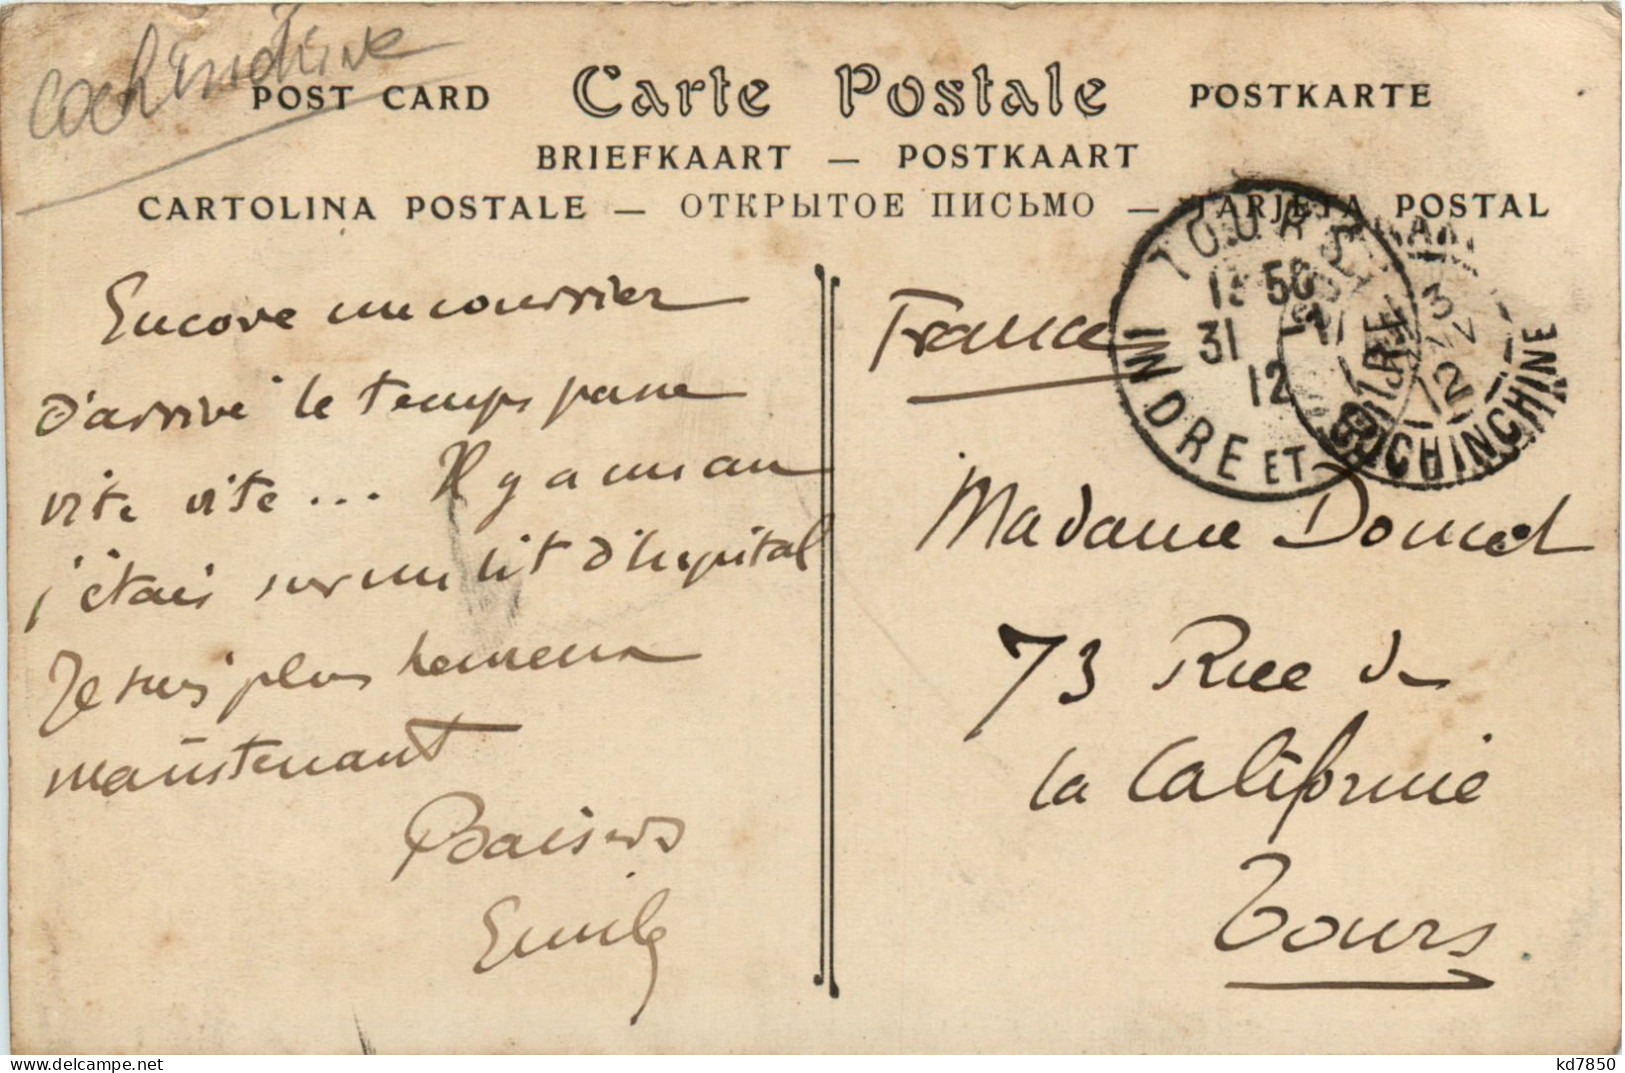 Cochinchine
POST CARD Carte Postale POSTKARTE
BRIEFKAART — POSTKAART
CARTOLINA POSTALE — ОТКРЫТОЕ ПИСЬМО — TARJETA POSTAL
Encore un courrier
d'arrivé le temps passe
vite vite... Il y a un an
j'étais sur un lit d'hopital
Je suis plus heureux
maintenant
Baisers
Emile
France
Madame Doucet
73 Rue de
la Californie
Tours
TOURS
50
31 - 1
12
INDRE ET LOIRE
3
12
COCHINCHINE
delcampe.net
kd7850